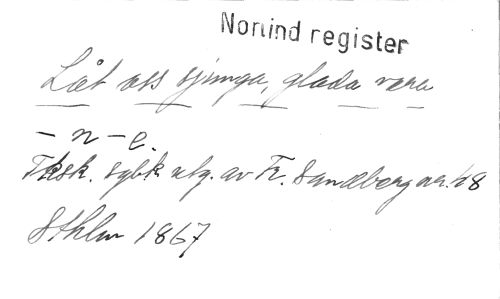 Nonind register
Låt oss sjunga, glada vara
- n - e.
Fksk. sgbk utg. av Fr. Sandberg nr. 48
Sthlm 1867